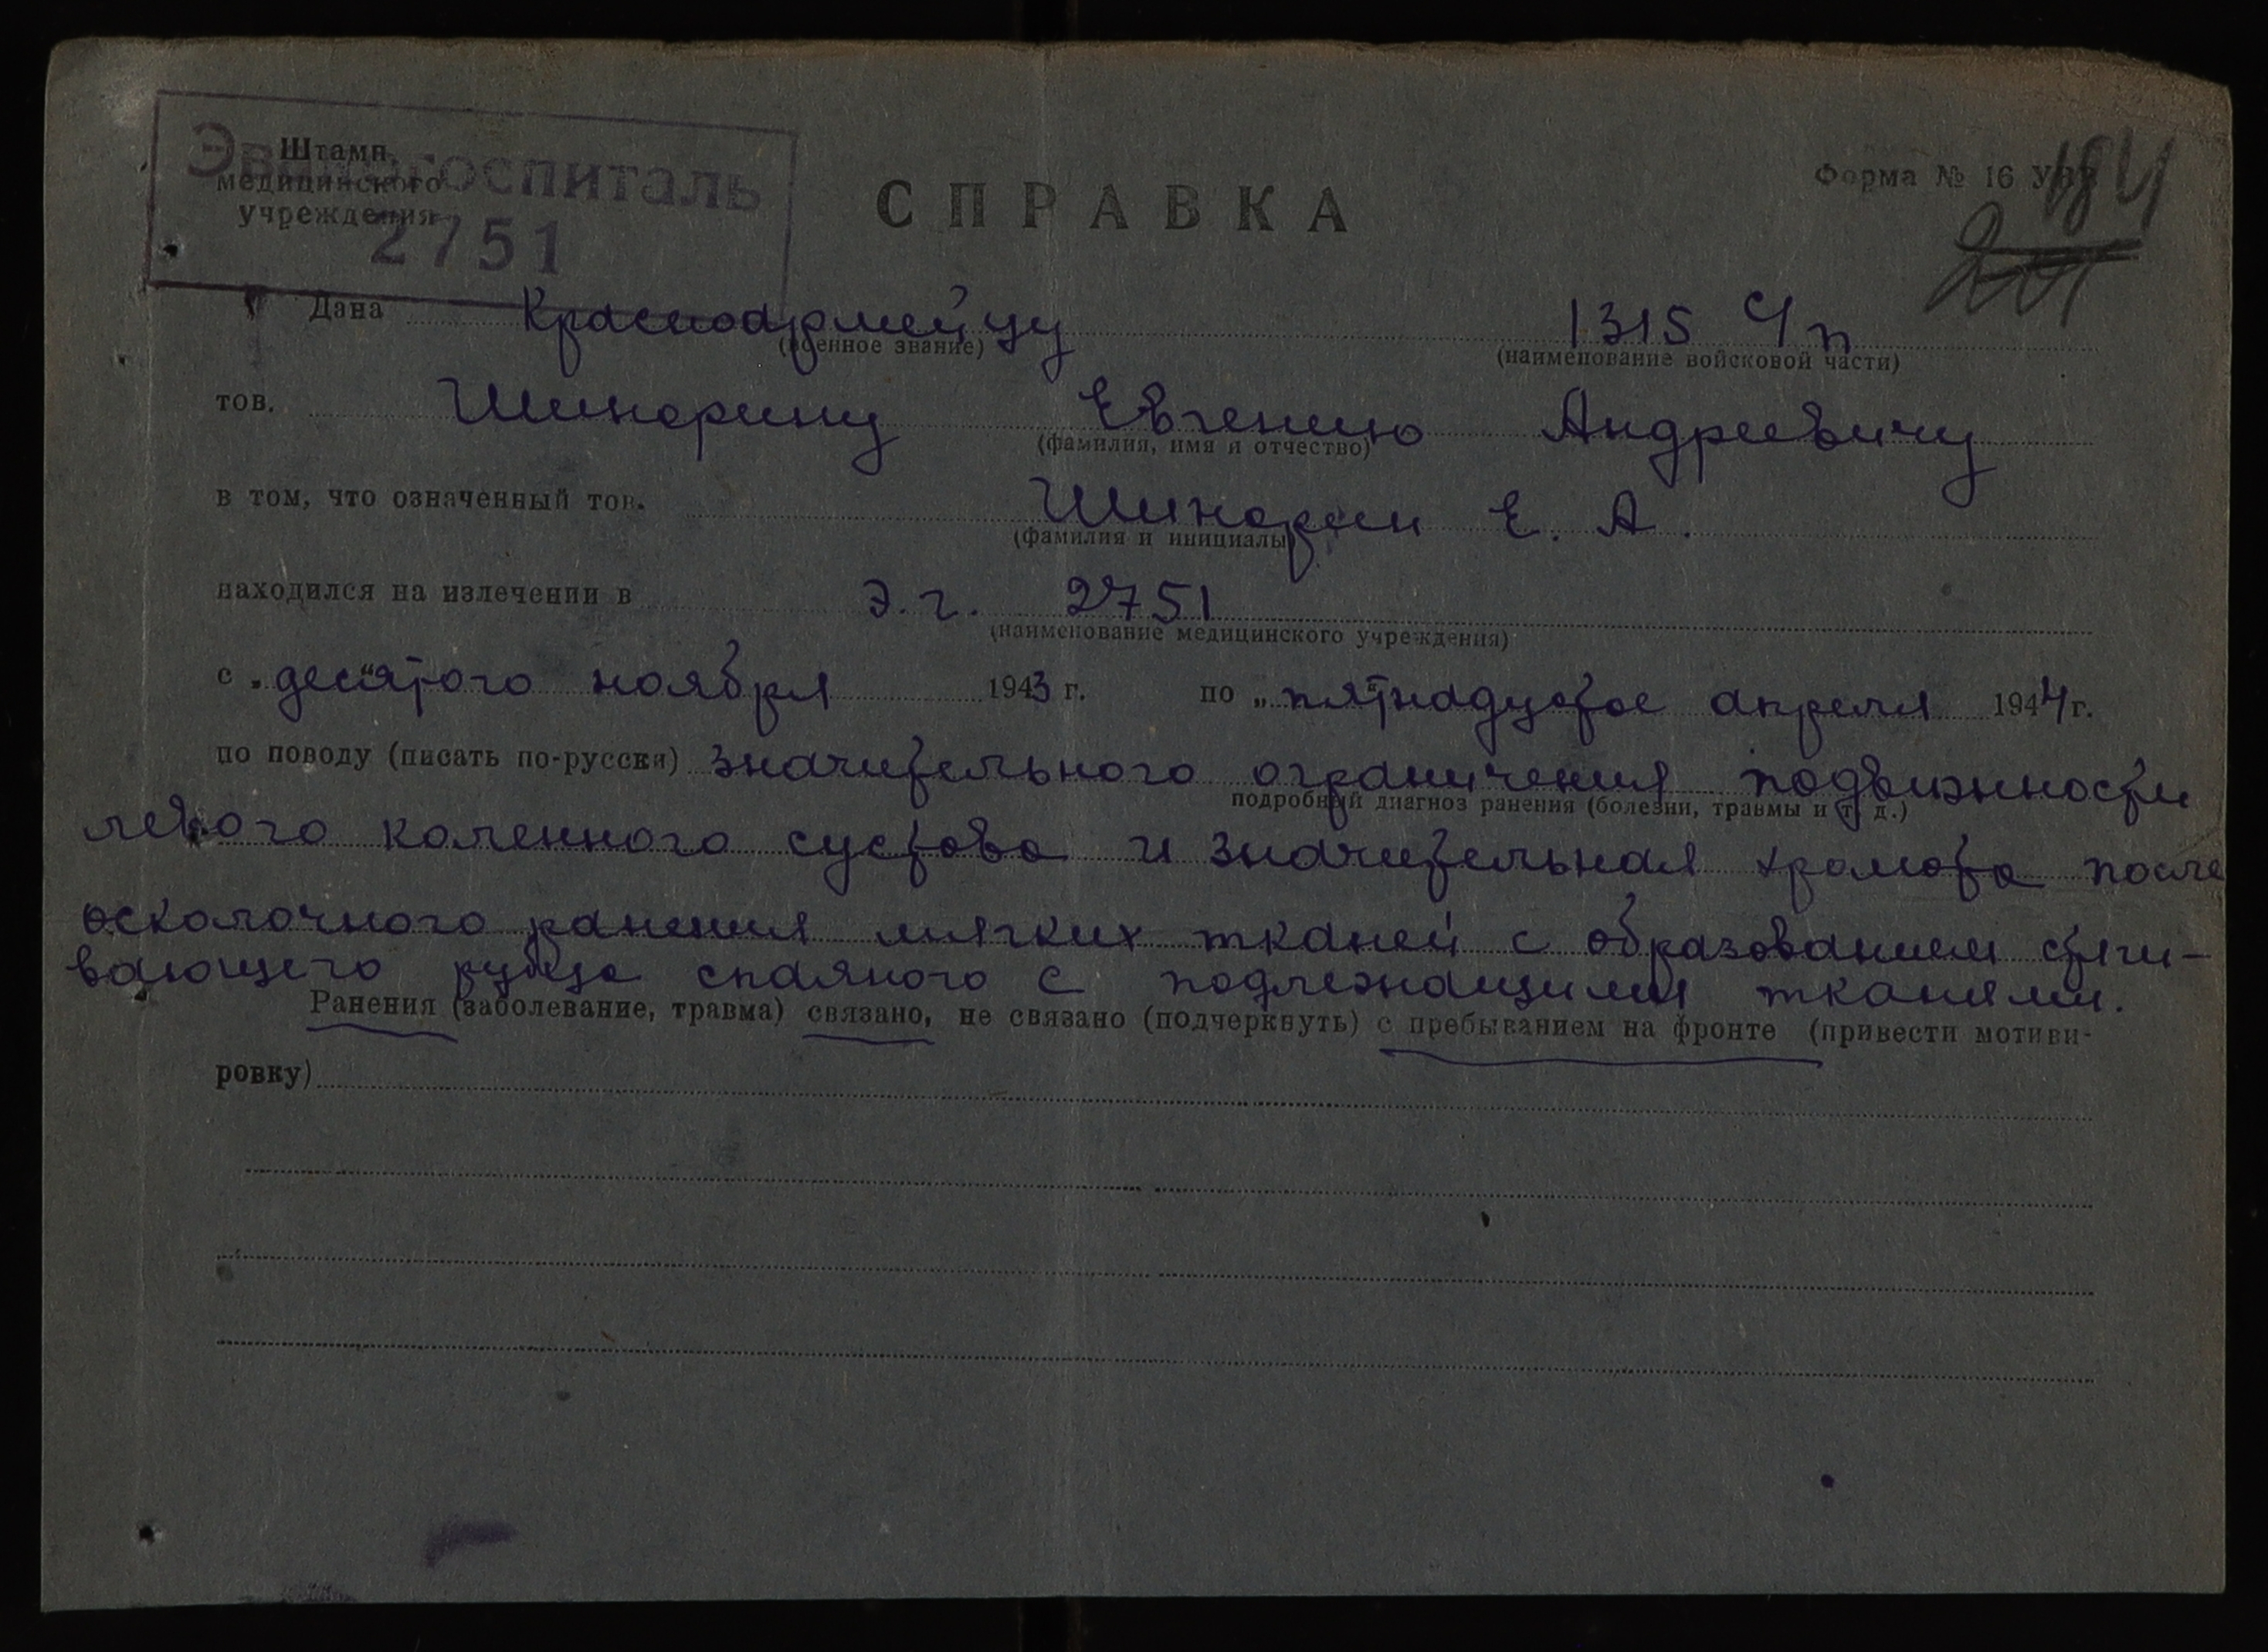 Эвакогоспиталь
2751
Штамп
медицинского
учреждения
Форма № 16
184
СПРАВКА
Дана Красноармейцу 1315 с/п
(военное звание) (наименование войсковой части)
тов. Шинорину Евгению Андреевичу
(фамилия, имя и отчество)
в том, что означенный тов. Шинорин Е. А.
(фамилия и инициалы)
находился на излечении в э.г. 2751
(наименование медицинского учреждения)
с „десятого“ ноября 1943 г. по „пятнадцатое апреля 1944 г.
по поводу (писать по-русски) значительного ограничения подвижности
подробный диагноз ранения (болезни, травмы и т. д.)
левого коленного сустава и значительная хромота после
осколочного ранения мягких тканей с образованием стяги-
вающего рубца спаяного с подлежащими тканями.
Ранения (заболевание, травма) связано, не связано (подчеркнуть) с пребыванием на фронте (привести мотиви-
ровку)